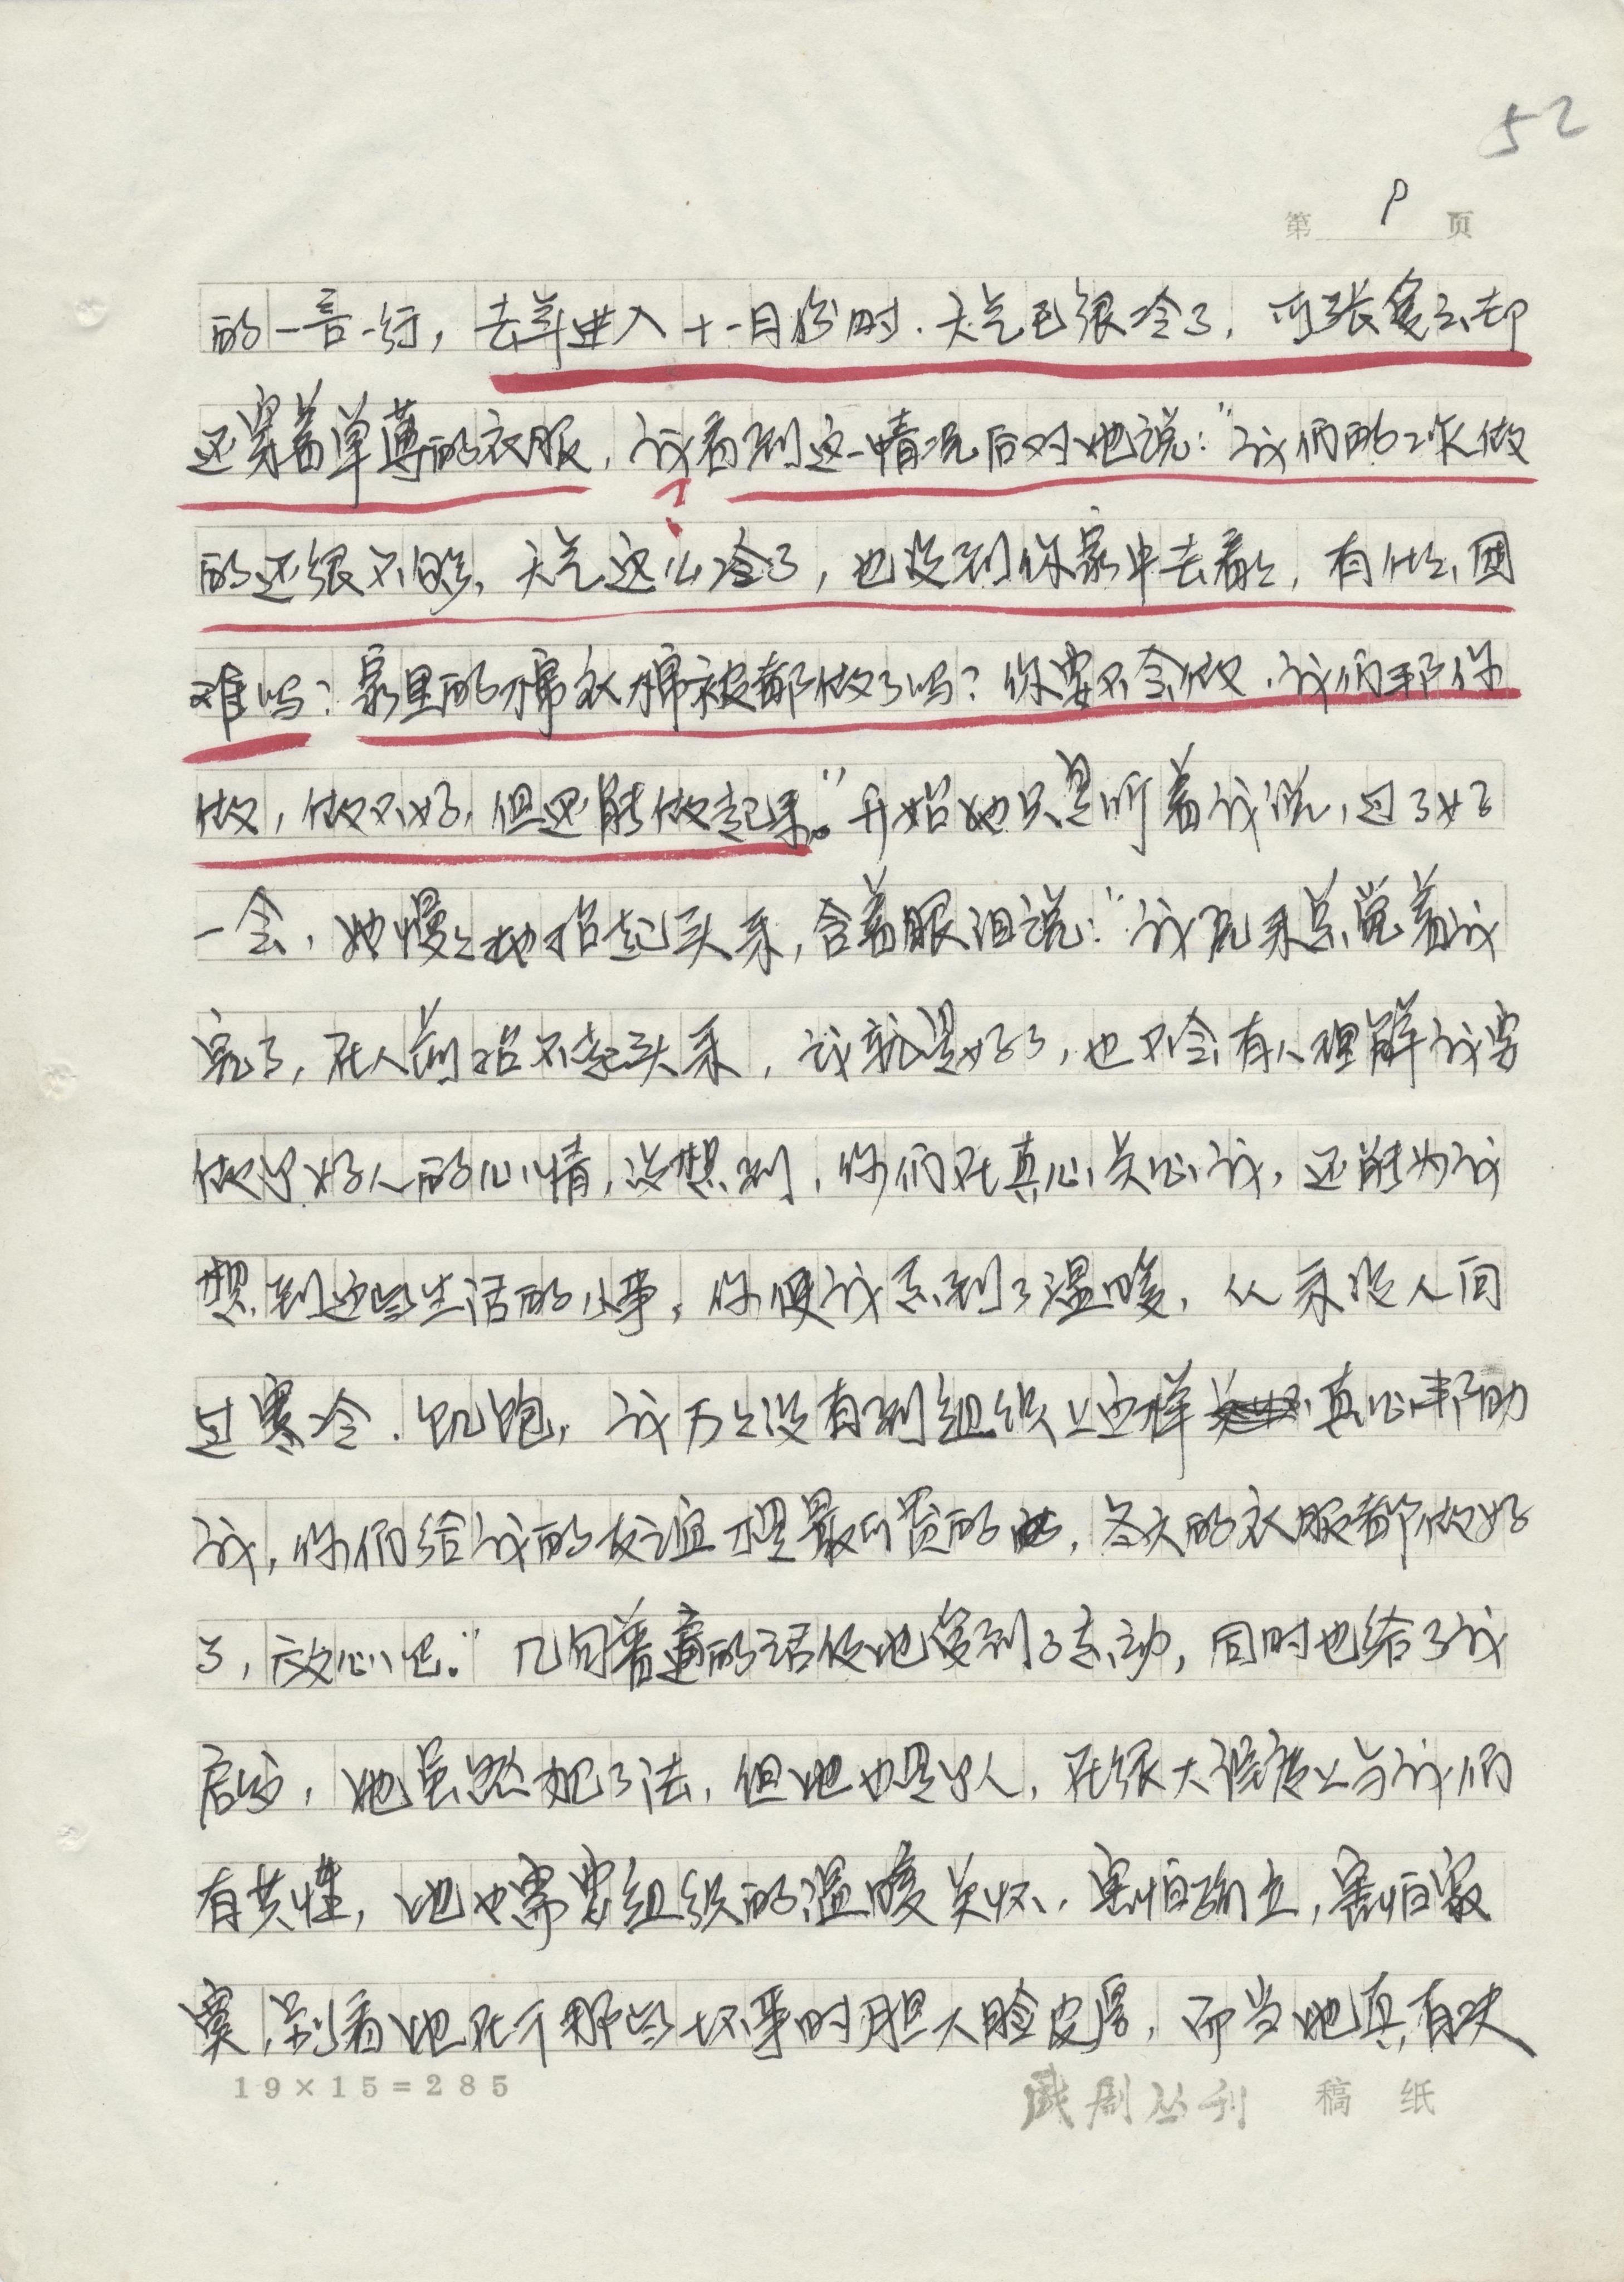 52
第 9 页
的一言一行，去年进入十一月份时．天气已很冷了，可张多々却
还穿着单薄的衣服，我看到这一情况后对她说：“我们的工作做
？
的还很不够，天气这么冷了，也没到你家中去看々，有什么困
难吗？家里的棉衣棉被都做了吗？你要不会做．我们帮你
做，做不好，但还能做起来。”开始她只是听着我说，过了好
一会，她慢々地抬起头来，含着眼泪说：“我原来总觉着我
完了，在人前抬不起头来，我就是好了，也不会有人理解我要
做个好人的心情，没想到，你们在真心关心我，还能为我
想到这些生活的小事，你使我感到了温暖，从来没人问
过寒冷．饥饱，我万々没有到组织上这样真心帮助
我，你们给我的友谊是最可贵的，冬天的衣服都做好
了，放心吧。”几句普通的话使她受到了感动，同时也给了我
启发，她虽然犯了法，但她也是个人，在很大程度上与我们
有共性，她也需要组织的温暖关怀．害怕孤立，害怕寂
寞，别看她在干那些坏事时胆大脸皮厚，而当她真有决
19×15=285
戏剧丛刊 稿纸